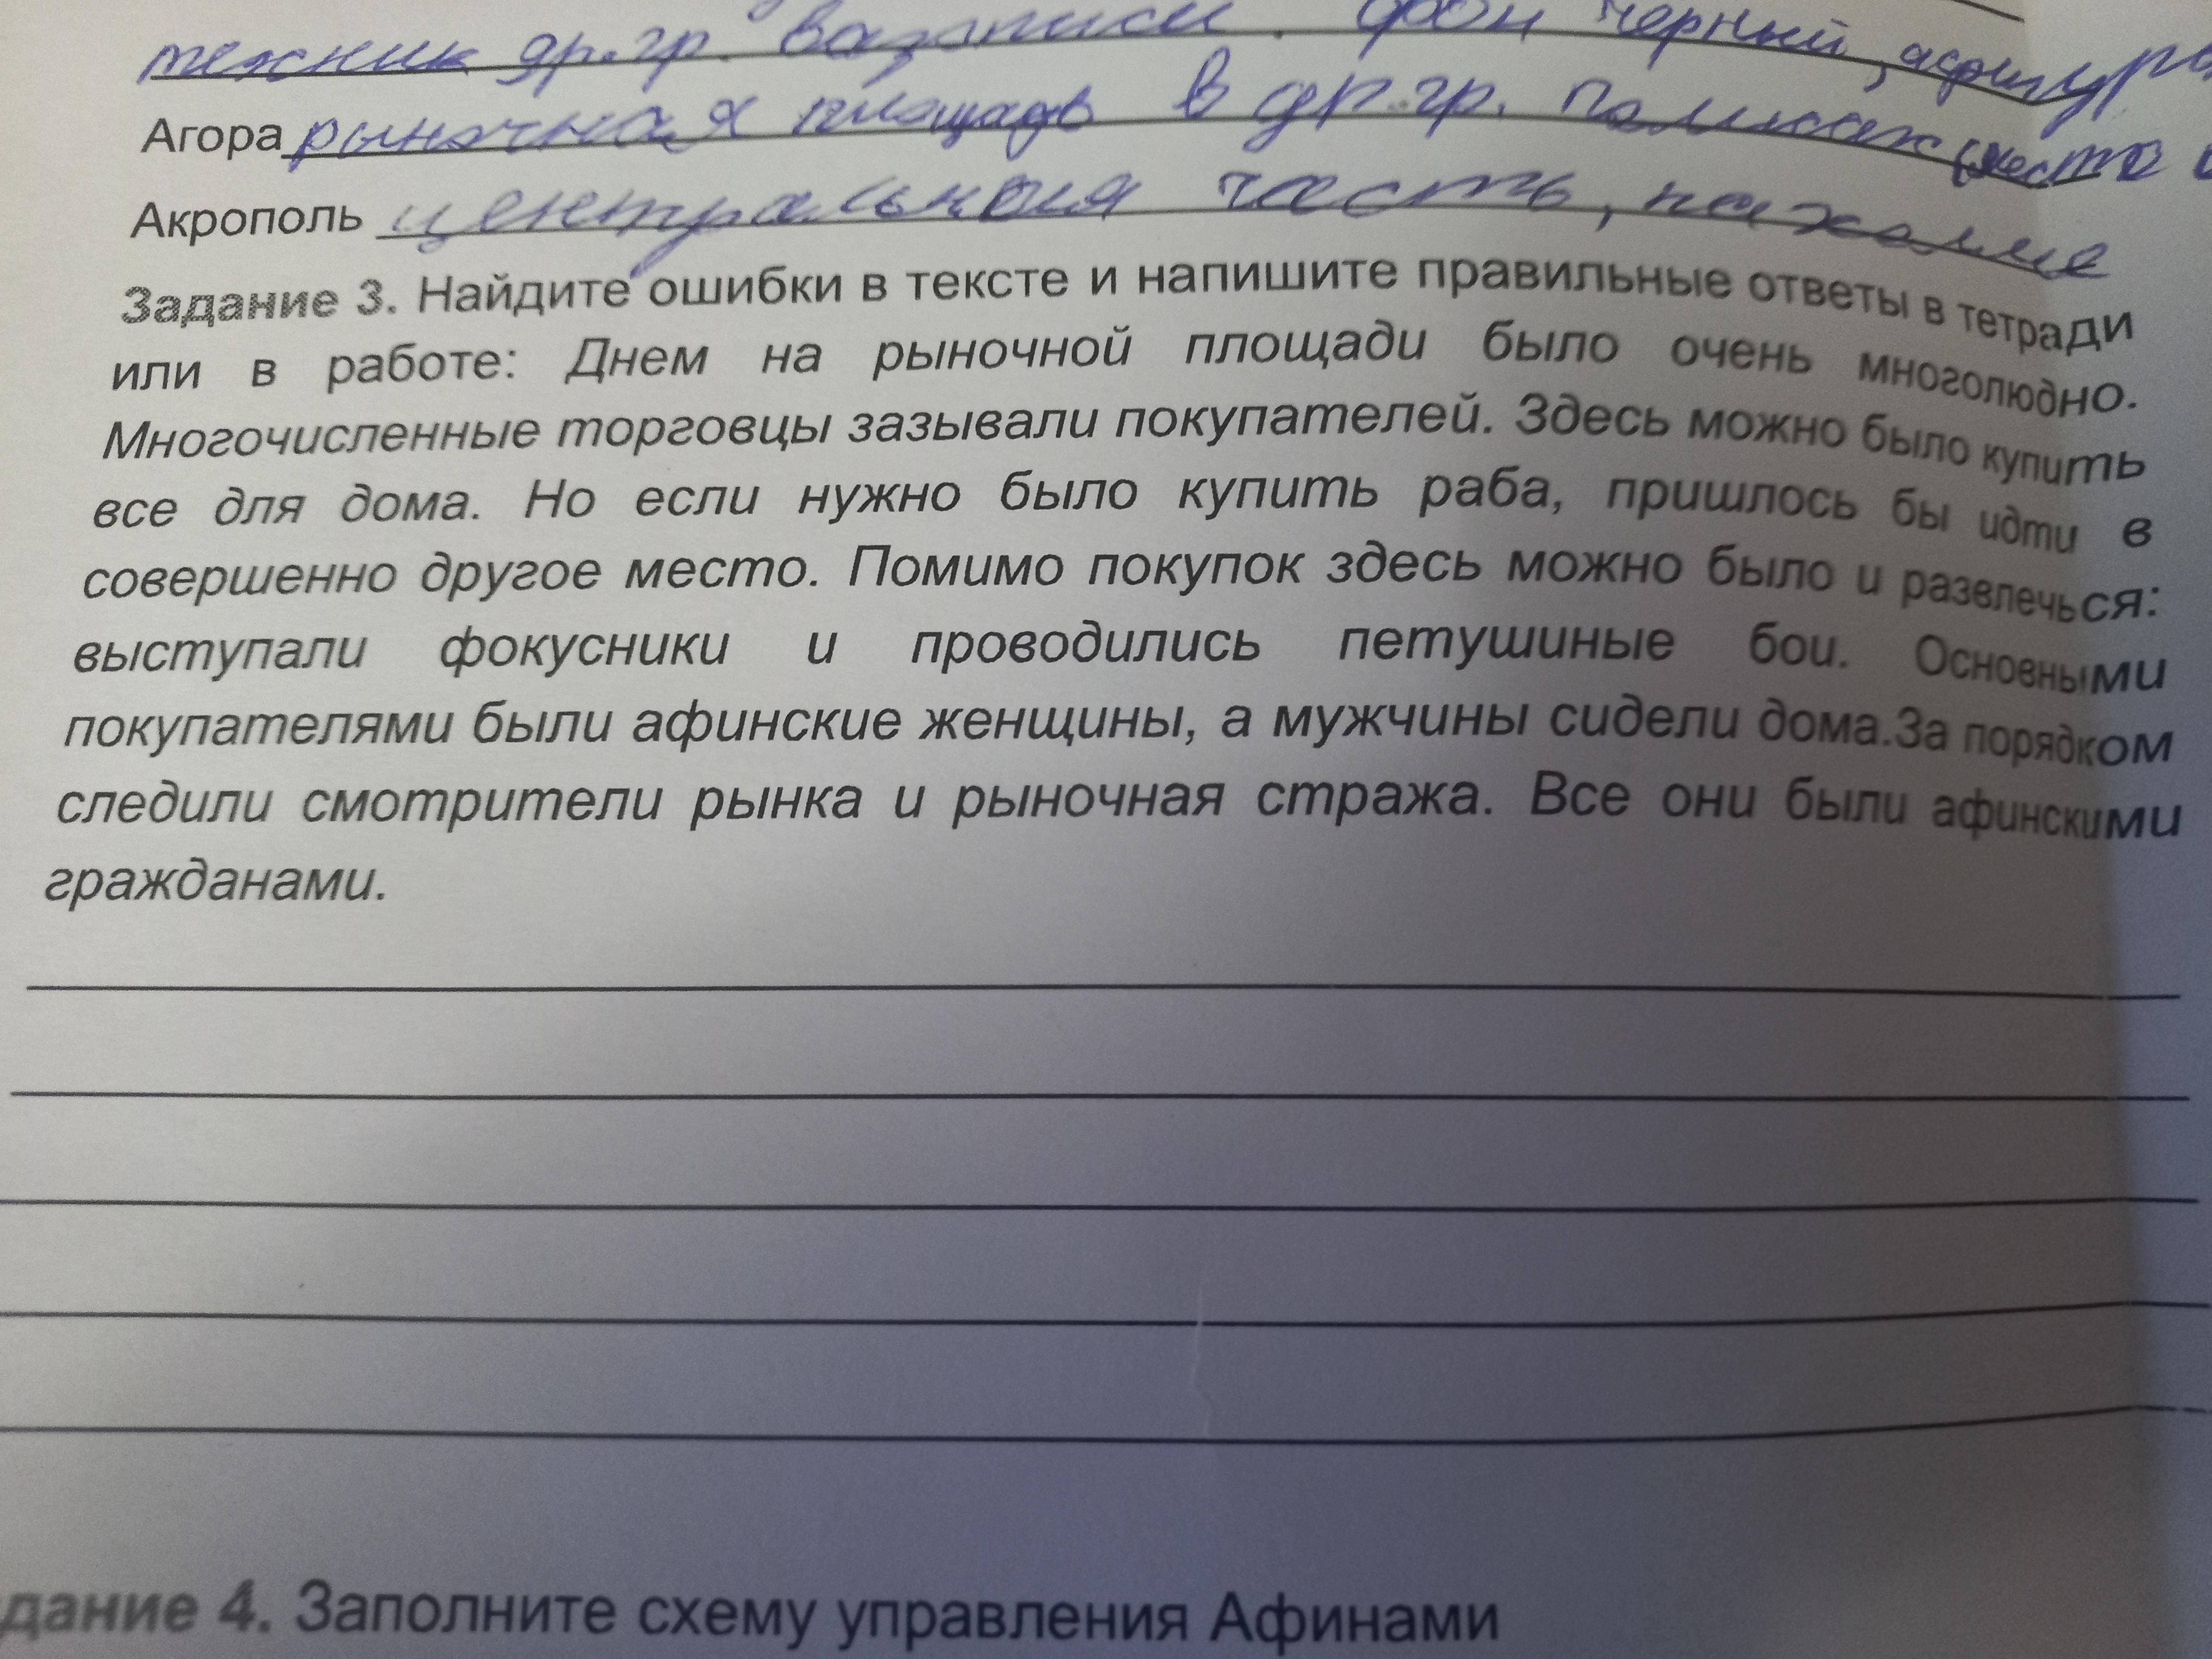 техник др.гр. вазописи. фон черный, а фигуры
Агора рыночная площадь в др.гр. полисах (место
Акрополь центральная часть, на холме
Задание 3. Найдите ошибки в тексте и напишите правильные ответы в тетради
или в работе: Днем на рыночной площади было очень многолюдно.
Многочисленные торговцы зазывали покупателей. Здесь можно было купить
все для дома. Но если нужно было купить раба, пришлось бы идти в
совершенно другое место. Помимо покупок здесь можно было и развлечься:
выступали фокусники и проводились петушиные бои. Основными
покупателями были афинские женщины, а мужчины сидели дома.За порядком
следили смотрители рынка и рыночная стража. Все они были афинскими
гражданами.
дание 4. Заполните схему управления Афинами